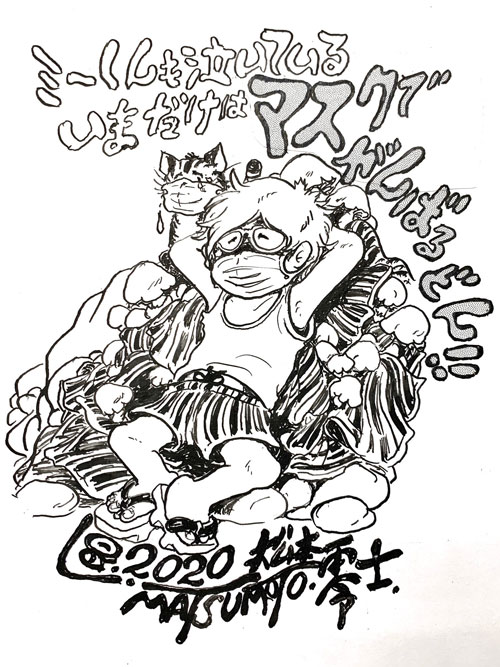 ミーくんも泣いている
いまだけは
マスクで
がんばるどー!!
2020 松本零士.
MATSUMOTO.